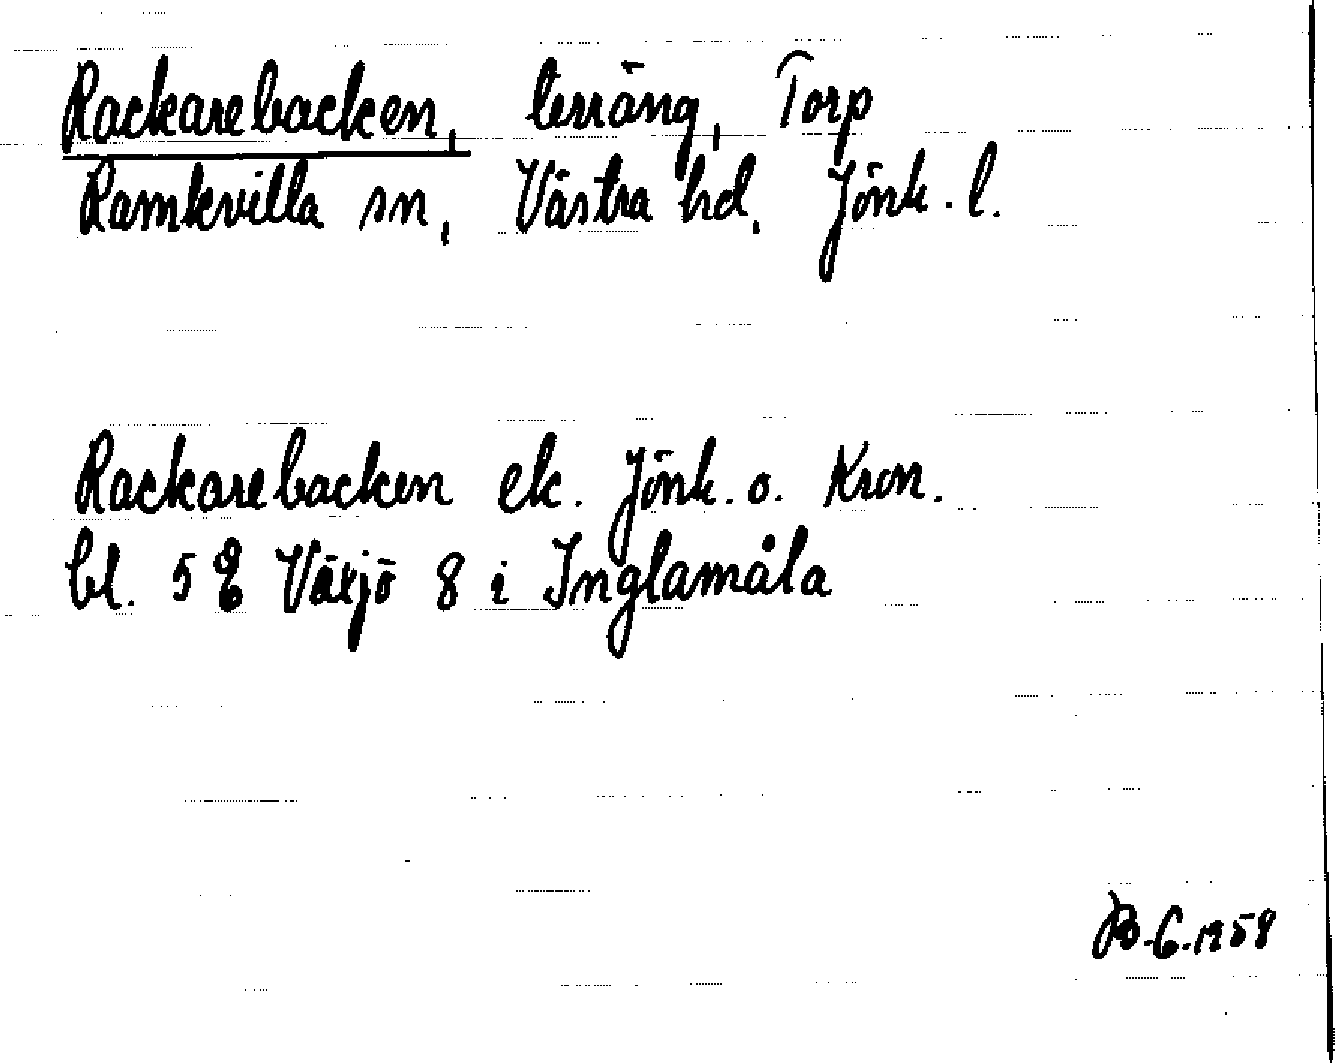 Rackarebacken, terräng, Torp
Ramkvilla sn, Västra hd, Jönk. l.
Rackarebacken ek. Jönk. o. Kron.
bl. 5 E Växjö 8 i Inglamåla
1958